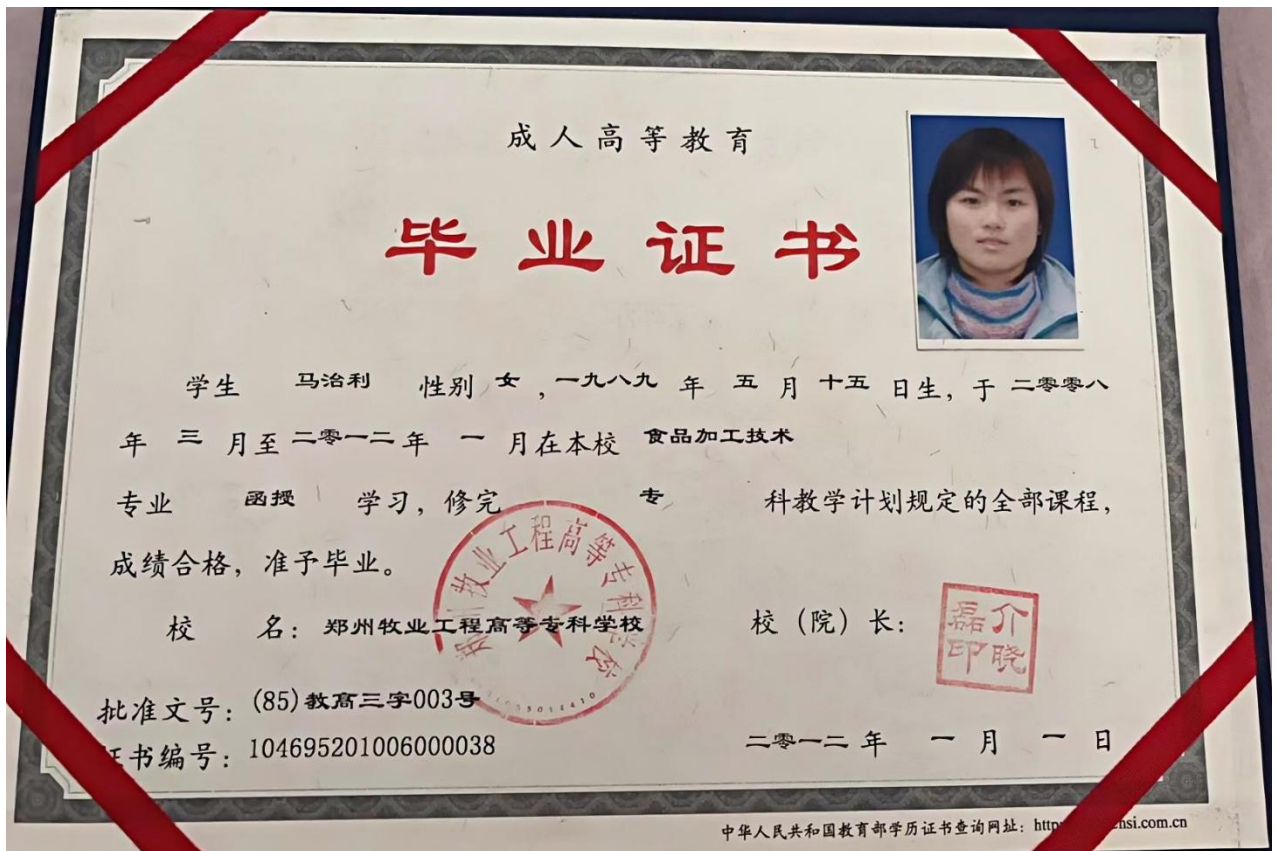 成人高等教育
毕业证书
学生 马治利 性别 女 , 一九八九 年 五 月 十五 日生, 于 二零零八
年 三 月至 二零一二 年 一 月在本校 食品加工技术
专业 函授 学习, 修完 专 科教学计划规定的全部课程,
成绩合格, 准予毕业。
校 名: 郑州牧业工程高等专科学校 校(院)长:
介晓磊印
郑州牧业工程高等专科学校
批准文号: (85)教高三字003号
证书编号: 104695201006000038
二零一二 年 一 月 一 日
中华人民共和国教育部学历证书查询网址: http hsi.com.cn